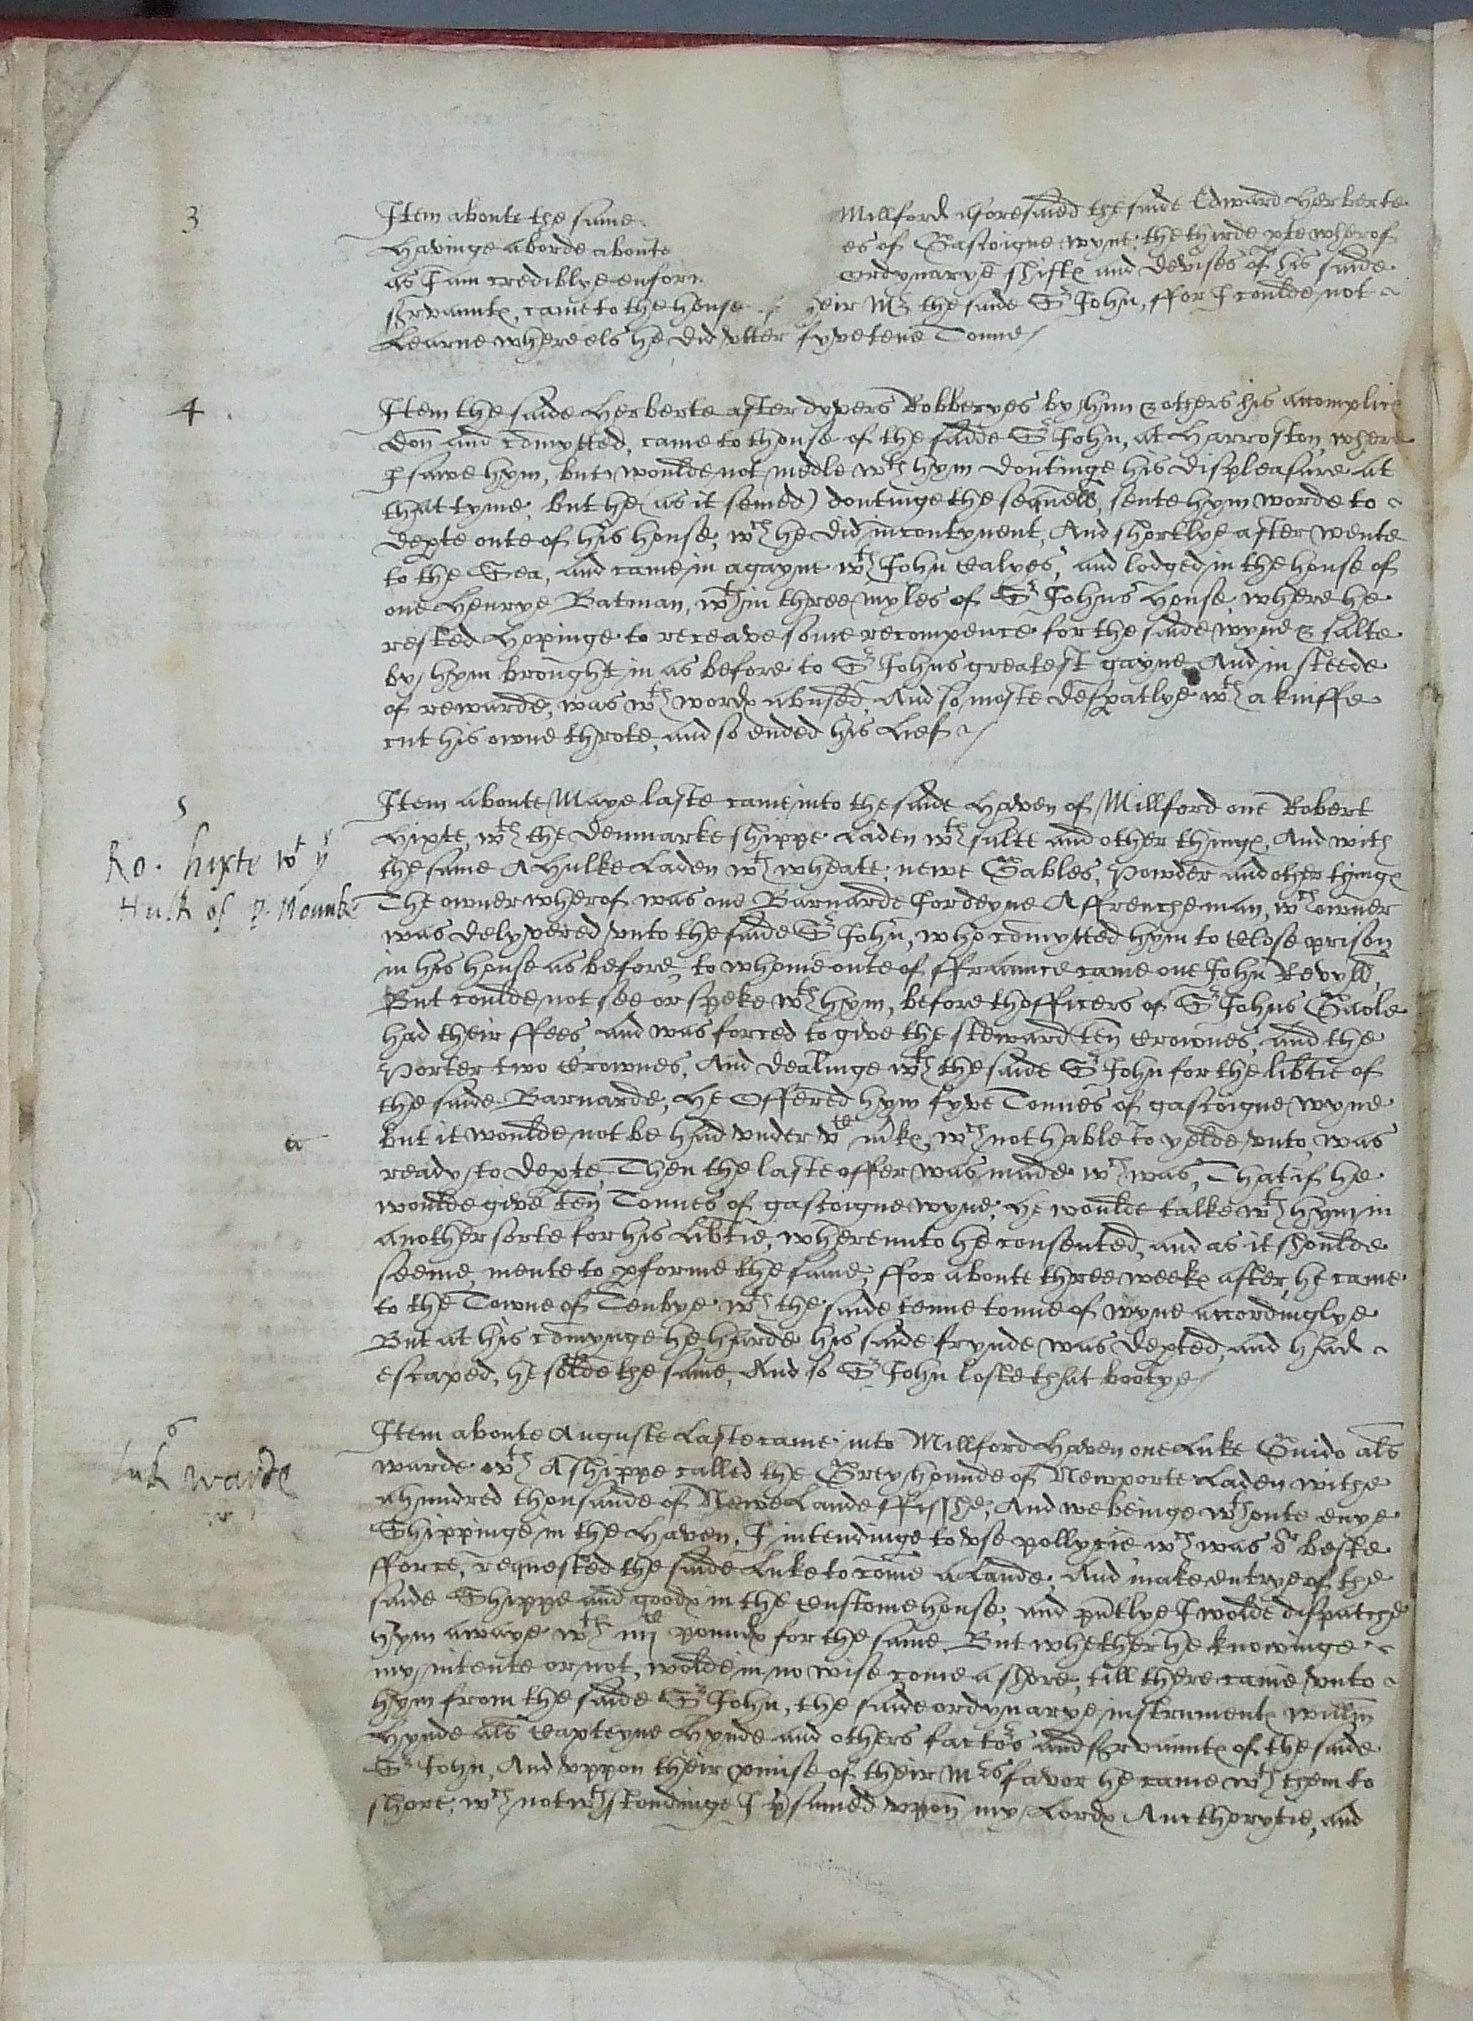 3
Item aboute the same Millford aforesaied the saide Edward Herberte
Havinge aborde aboute es of Gascoigne wyne, the thirde pte wherof
as I am crediblye enfor ordynarye shiftes and devises of his saide
servauntes, came to the house eir Mr the saide Sr John, ffor I coulde not
Learne where els he did vtter fyvetene Tonne/
4
Item the saide Herberte after dyvers Robberyes by hym & others his accomplices
don and comytted, came to thouse of the saide Sr John, at Harroston, where
I sawe hym, but woulde not medle wth hym doutinge his displeasure at
that tyme, but he (as it semed) doutinge the sequell, sente hym worde to
depte oute of his house, wch he did incontynent, And shortlye after wente
to the Sea, and came in agayne wth John Calyes, and lodged in the house of
one Henrye Batman, wthin three myles of Sr Johns house, where he
rested hopinge to receave some recompence for the saide wyne & salte
by hym brought in as before to Sr Johns greatest gayne, And in steede
of rewarde, was wth wordes abused, And so moste despatlye wth a kniffe
cut his owne throte, and so ended his Lief/
5
Item aboute Maye laste came into the saide Haven of Millford one Robert
Ro. hixte wt ye
Hixte, wth the Denmarke shippe Laden wth salte and other thinges, And with
the same A Hulke Laden wth wheate, newe Gables, Powder and other thinges
Hulk of Mounke
The owner wherof was one Barnarde Jordeyne A ffrencheman, wch owner
was delyvered vnto the saide Sr John, who comytted hym to close prison
in his house as before, to whome oute of ffraunce came one John Revyll,
But coulde not see or speke wth hym, before thofficers of Sr Johns Gaole
had their ffees, and was forced to give the steward ten crownes, and the
Porter two crownes, And dealinge wth the saide Sr John for the libtie of
the saide Barnarde, he Offered hym fyve Tonnes of gascoigne wyne
but it woulde not be had vnder vc mkes, wch not hable to yelde vnto, was
ready to depte, Then the laste offer was made wch was, That if he
woulde give ten Tonnes of gascoigne wyne, he woulde talke wth hym in
another sorte for his Libtie, whereunto he consented, and as it shoulde
seeme, mente to pforme the same, ffor aboute three weekes after, he came
to the Towne of Tenbye wth the saide tenne tonne of wyne accordinglye
But at his comynge he harde his saide frynde was depted, and had
escaped, he solde the same, And so Sr John loste that bootye/
6
Item aboute Auguste Laste came into Millford Haven one Luke Guido als
Luk warde
warde wth A shippe called the Greyhounde of Newporte Laden withe
a hundred thousande of Newe Lande ffisshe, And we beinge wthoute enye
Shippinge in the Haven, I intendinge to vse pollycie wch was or beste
fforce, requested the saide Luke to come a Lande, And make entrye of the
saide Shippe and goodes in the Custome house, and pntlye I wolde dispatche
hym awaye wth iiijc poundes for the same But whether he knowinge
my intente or not, wolde in no wise come a shore, till there came vnto
hym from the saide Sr John, the saide ordynarye instrumentes Willm
Hynde als Capteyne Hynde and others factors and servauntes of the saide
Sr John, And vppon their pmise of their Mrs favor he came wth them to
shore, wch notwthstondinge I psumed vpon my Lordes Aucthorytie, and